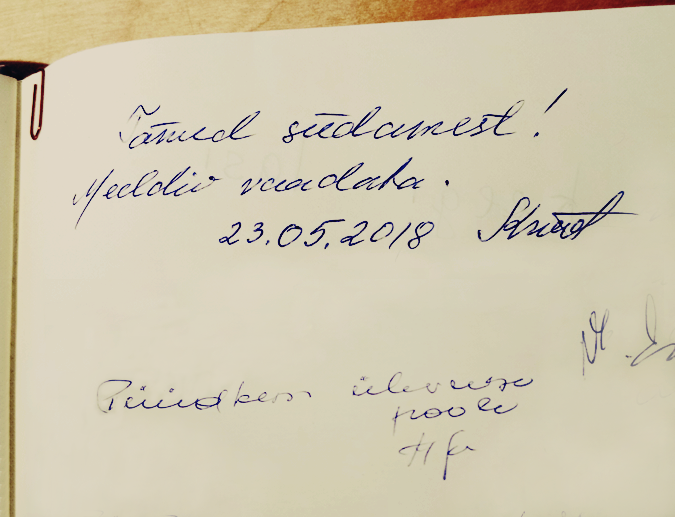 Tänud südamest!
Meeldiv vaadata.
23.05.2018
Püüdkem ülevuse
poole